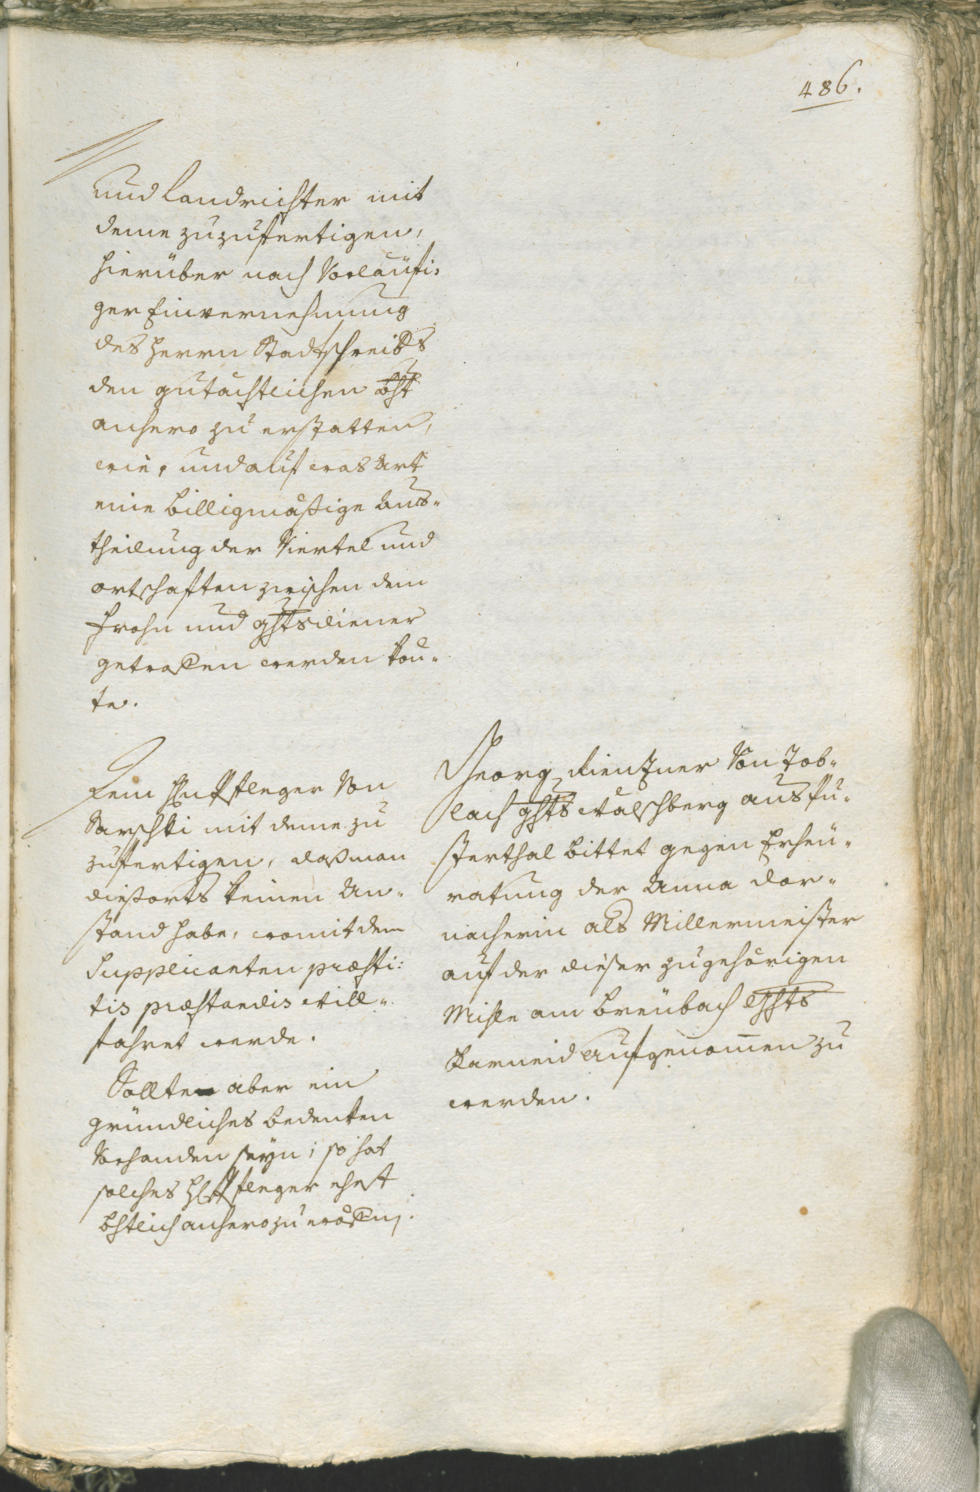 486.
und Landrichter mit
deme zuzufertigen,
hierüber nach Vorläufi-
ger Einvernehmung
des Herrn Stadtschreibers
den gutächtlichen Bht
anhero zu erstatten,
wie, und auf was Art
eine billigmäßige Aus-
theilung der Viertel und
Ortschaften zwischen dem
Frohn und Ghtsdiener
getroffen werden kön-
te.
Dem Pfleger Von
Sarnthei mit deme zu
zufertigen, daß man
dießorts keinen An-
stand habe, womit dem
Supplicanten præsti:
tis præstandis will-
fahret werde.
Sollte aber ein
gründliches bedenken
Vorhanden seyn; so hat
solches H Pfleger ehest
bhtlich anhero zu eröffnen.
Georg Kienzner Von Tob-
lach Ghts Wälschberg aus Pu-
sterthal bittet gegen Erheu-
ratung der Anna Dor-
nacherin als Millermeister
auf der dieser zugehörigen
Mihle am Breibach Ghts
Karneid aufgenommen zu
werden.